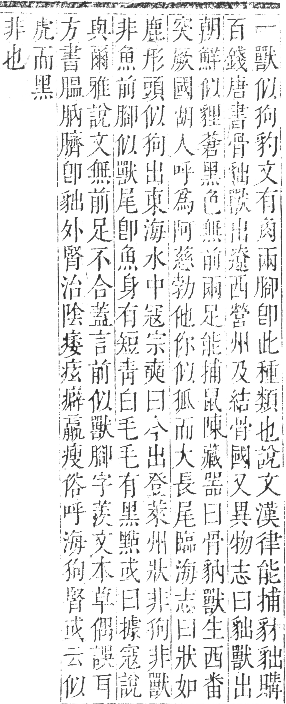 一獸似狗豹文有角兩腳卽此種類也說文漢律能捕豺貀購
百錢唐書骨貀獸出遼西營州及結骨國又異物志曰貀獸出
朝鮮似貍蒼黑色無前兩足能捕鼠陳藏器曰骨豽獸生西番
突厥國胡人呼為阿慈勃他你似狐而大長尾臨海志曰狀如
鹿形頭似狗出東海水中寇宗奭曰今出登萊州狀非狗非獸
非魚前腳似獸尾卽魚身有短靑白毛毛有黑點或曰據寇說
與爾雅說文無前足不合蓋言前似獸腳字羨文本草偶誤耳
方書膃肭臍卽貀外腎治陰痿痃癖羸瘦俗呼海狗腎或云似
虎而黑
非也